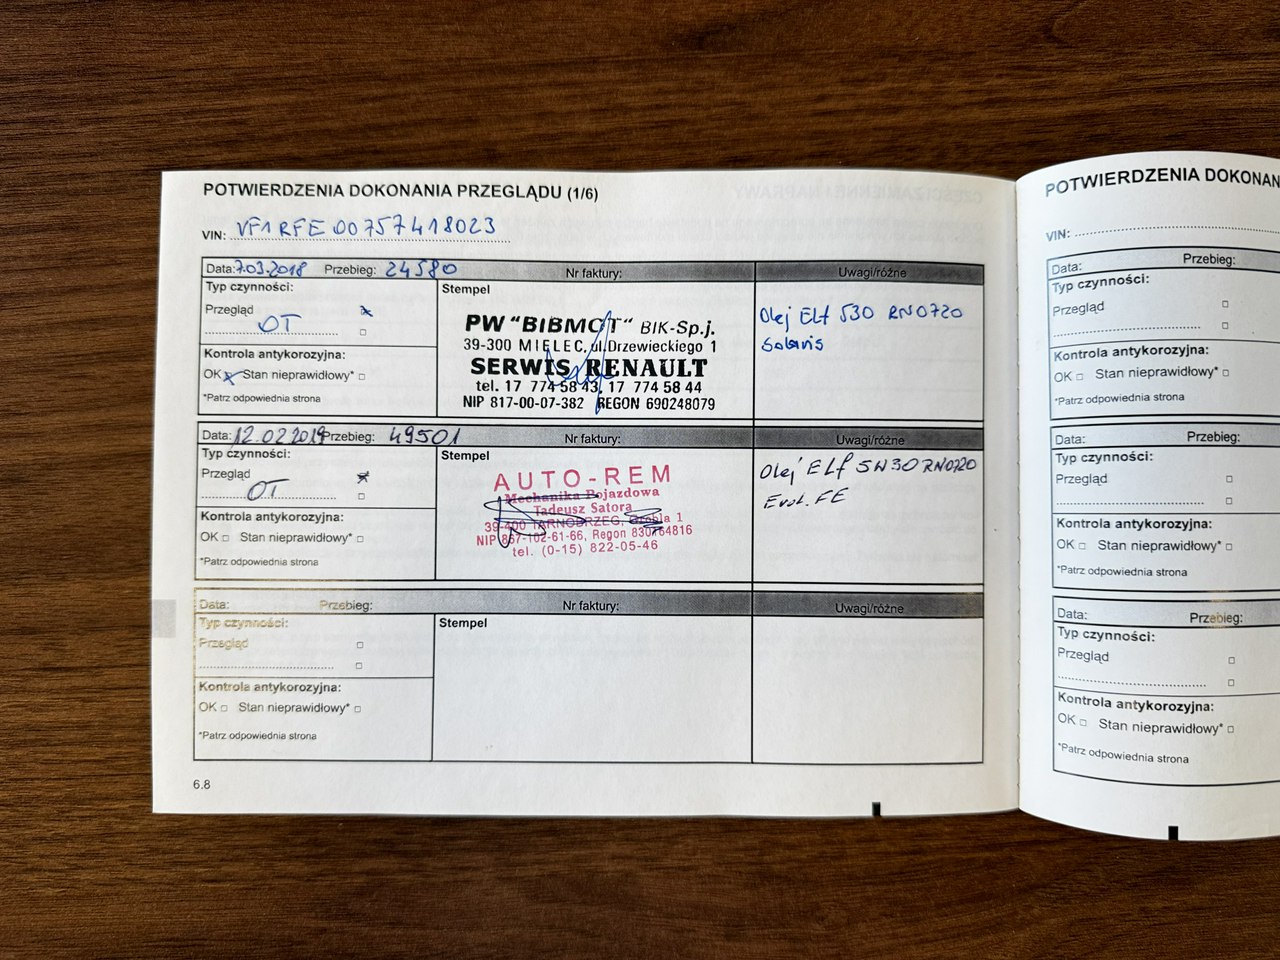 POTWIERDZENIA DOKONANIA PRZEGLĄDU (1/6)
VIN: VF1RFE00757418023
Data: 7.03.2018 Przebieg: 24580 Nr faktury: Uwagi/różne
Typ czynności:
Przegląd
OT
Kontrola antykorozyjna:
OK Stan nieprawidłowy*
*Patrz odpowiednia strona
Stempel
PW "BIBMOT" BIK-Sp.j.
39-300 MIELEC, ul.Drzewieckiego 1
SERWIS RENAULT
tel. 17 774 58 43, 17 774 58 44
NIP 817-00-07-382 REGON 690248079
Olej Elf 530 RN0720
Solaris
Data: 12.02.2019 Przebieg: 49501 Nr faktury: Uwagi/różne
Typ czynności:
Przegląd
OT
Kontrola antykorozyjna:
OK Stan nieprawidłowy*
*Patrz odpowiednia strona
Stempel
AUTO-REM
Mechanika Pojazdowa
Tadeusz Satora
39-400 TARNOBRZEG, 1
NIP 867-102-61-66, Regon 830764816
tel. (0-15) 822-05-46
Olej ELf 5W30 RN0720
Evol. FE
Data: Przebieg: Nr faktury: Uwagi/różne
Typ czynności:
Przegląd
Kontrola antykorozyjna:
OK Stan nieprawidłowy*
*Patrz odpowiednia strona
Stempel
6.8
POTWIERDZENIA DOKONAN
VIN:
Data: Przebieg:
Typ czynności:
Przegląd
Kontrola antykorozyjna:
OK Stan nieprawidłowy*
*Patrz odpowiednia strona
Data: Przebieg:
Typ czynności:
Przegląd
Kontrola antykorozyjna:
OK Stan nieprawidłowy*
*Patrz odpowiednia strona
Data: Przebieg:
Typ czynności:
Przegląd
Kontrola antykorozyjna:
OK Stan nieprawidłowy*
*Patrz odpowiednia strona